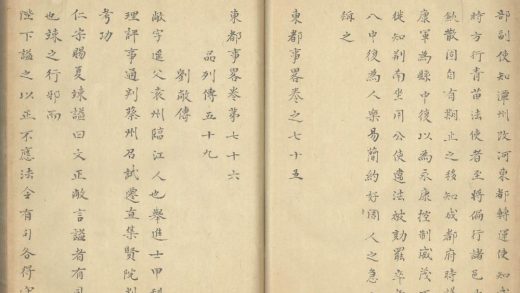 部副使知潭州改河東都轉運使知
時方行青苗法使者至將徧行諸邑
斂散同自有期止之後知成都府時
康軍為縣中復以為永康控制威茂不
徙知荆南坐用公使違法被劾罷卒年
八中復為人樂易簡約好周人之急
稱之
東都事畧卷之七十五
東都事畧卷第七十六
品列傳五十九
劉敞傳
敞字父袁州臨江人也舉進士甲科
理評事通判蔡州召試遷直集賢院判
考功
仁宗賜夏竦謚曰文正敞言謚者有司
也竦之行邪而
陛下謚之以正不應法令有司各得守